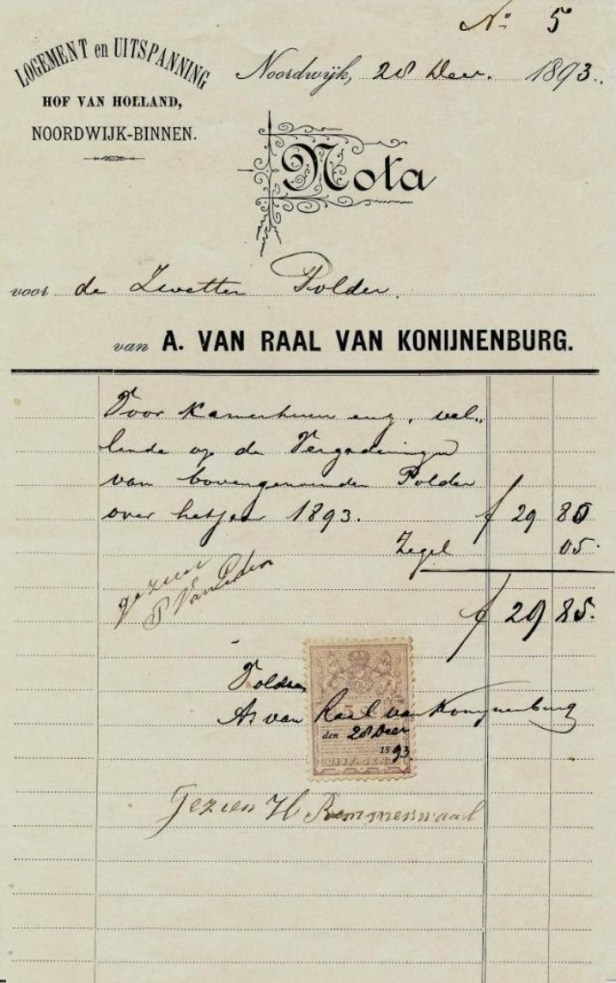 No 5
LOGEMENT en UITSPANNING
HOF VAN HOLLAND,
NOORDWIJK-BINNEN.
Noordwijk, 28 Decr. 1893.
Nota
voor de Zwetter Polder.
van A. VAN RAAL VAN KONIJNENBURG.
Voor Kamerhuur enz. val„
lende op de Vergaderingen
van bovengenoemden Polder
over het jaar 1893. f 29 80
Zegel 05.
gezien
f 29 85.
Voldaan
A van Raal van Konijnenburg
5
den 28 Decr
1893.
Gezien H Remmerswaal